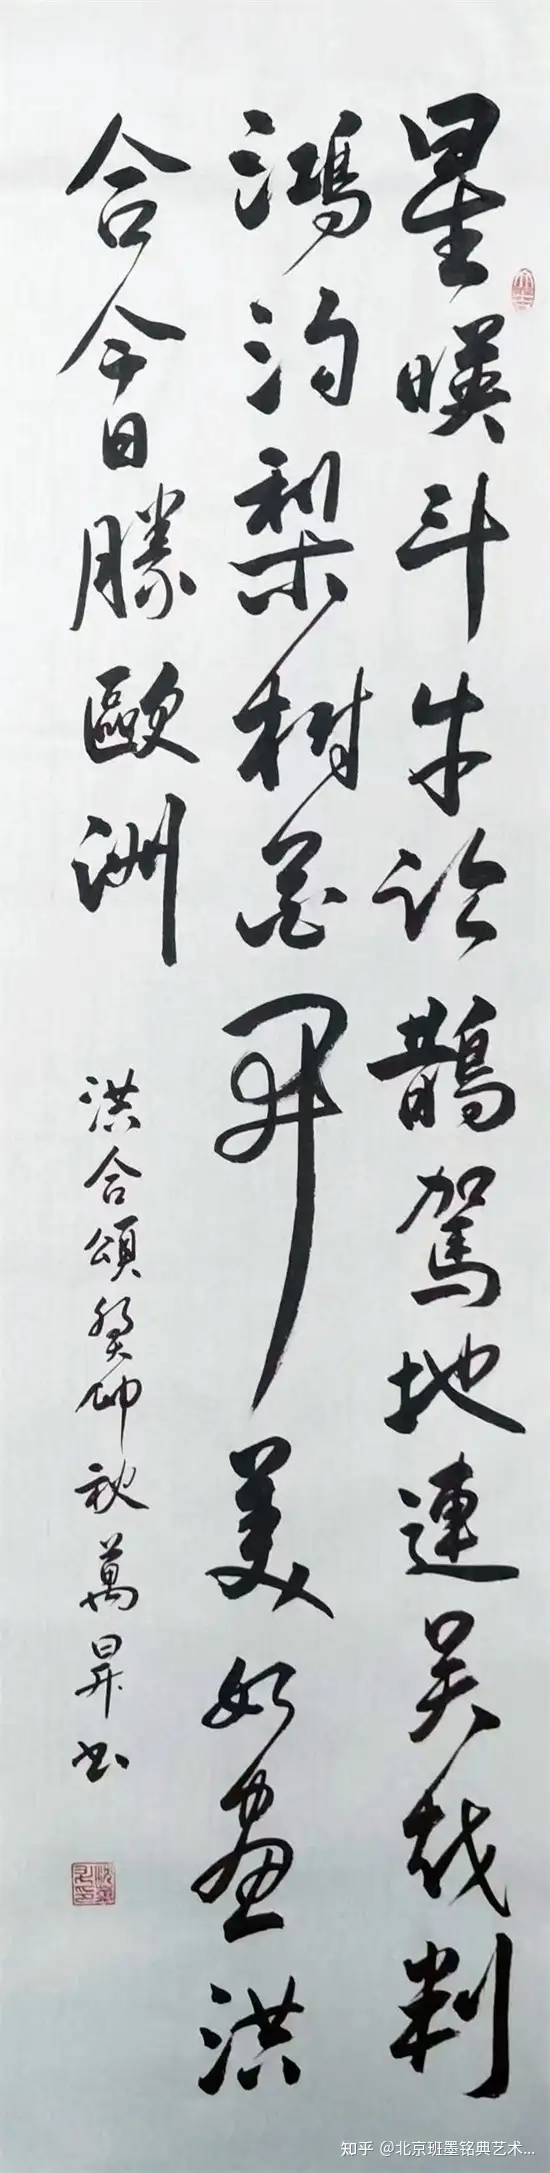 星暎斗牛論鵲駕地連吴越判
鴻沟梨樹花開美如畫洪
合今日勝歐洲
洪合頌癸卯秋萬昇书
知乎 @北京班墨铭典艺术...